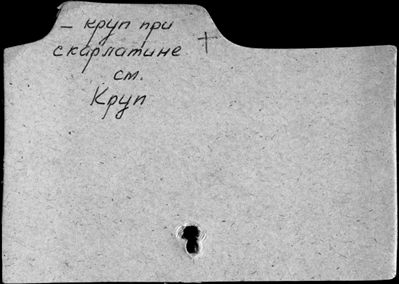 — круп при
скарлатине
см.
Круп